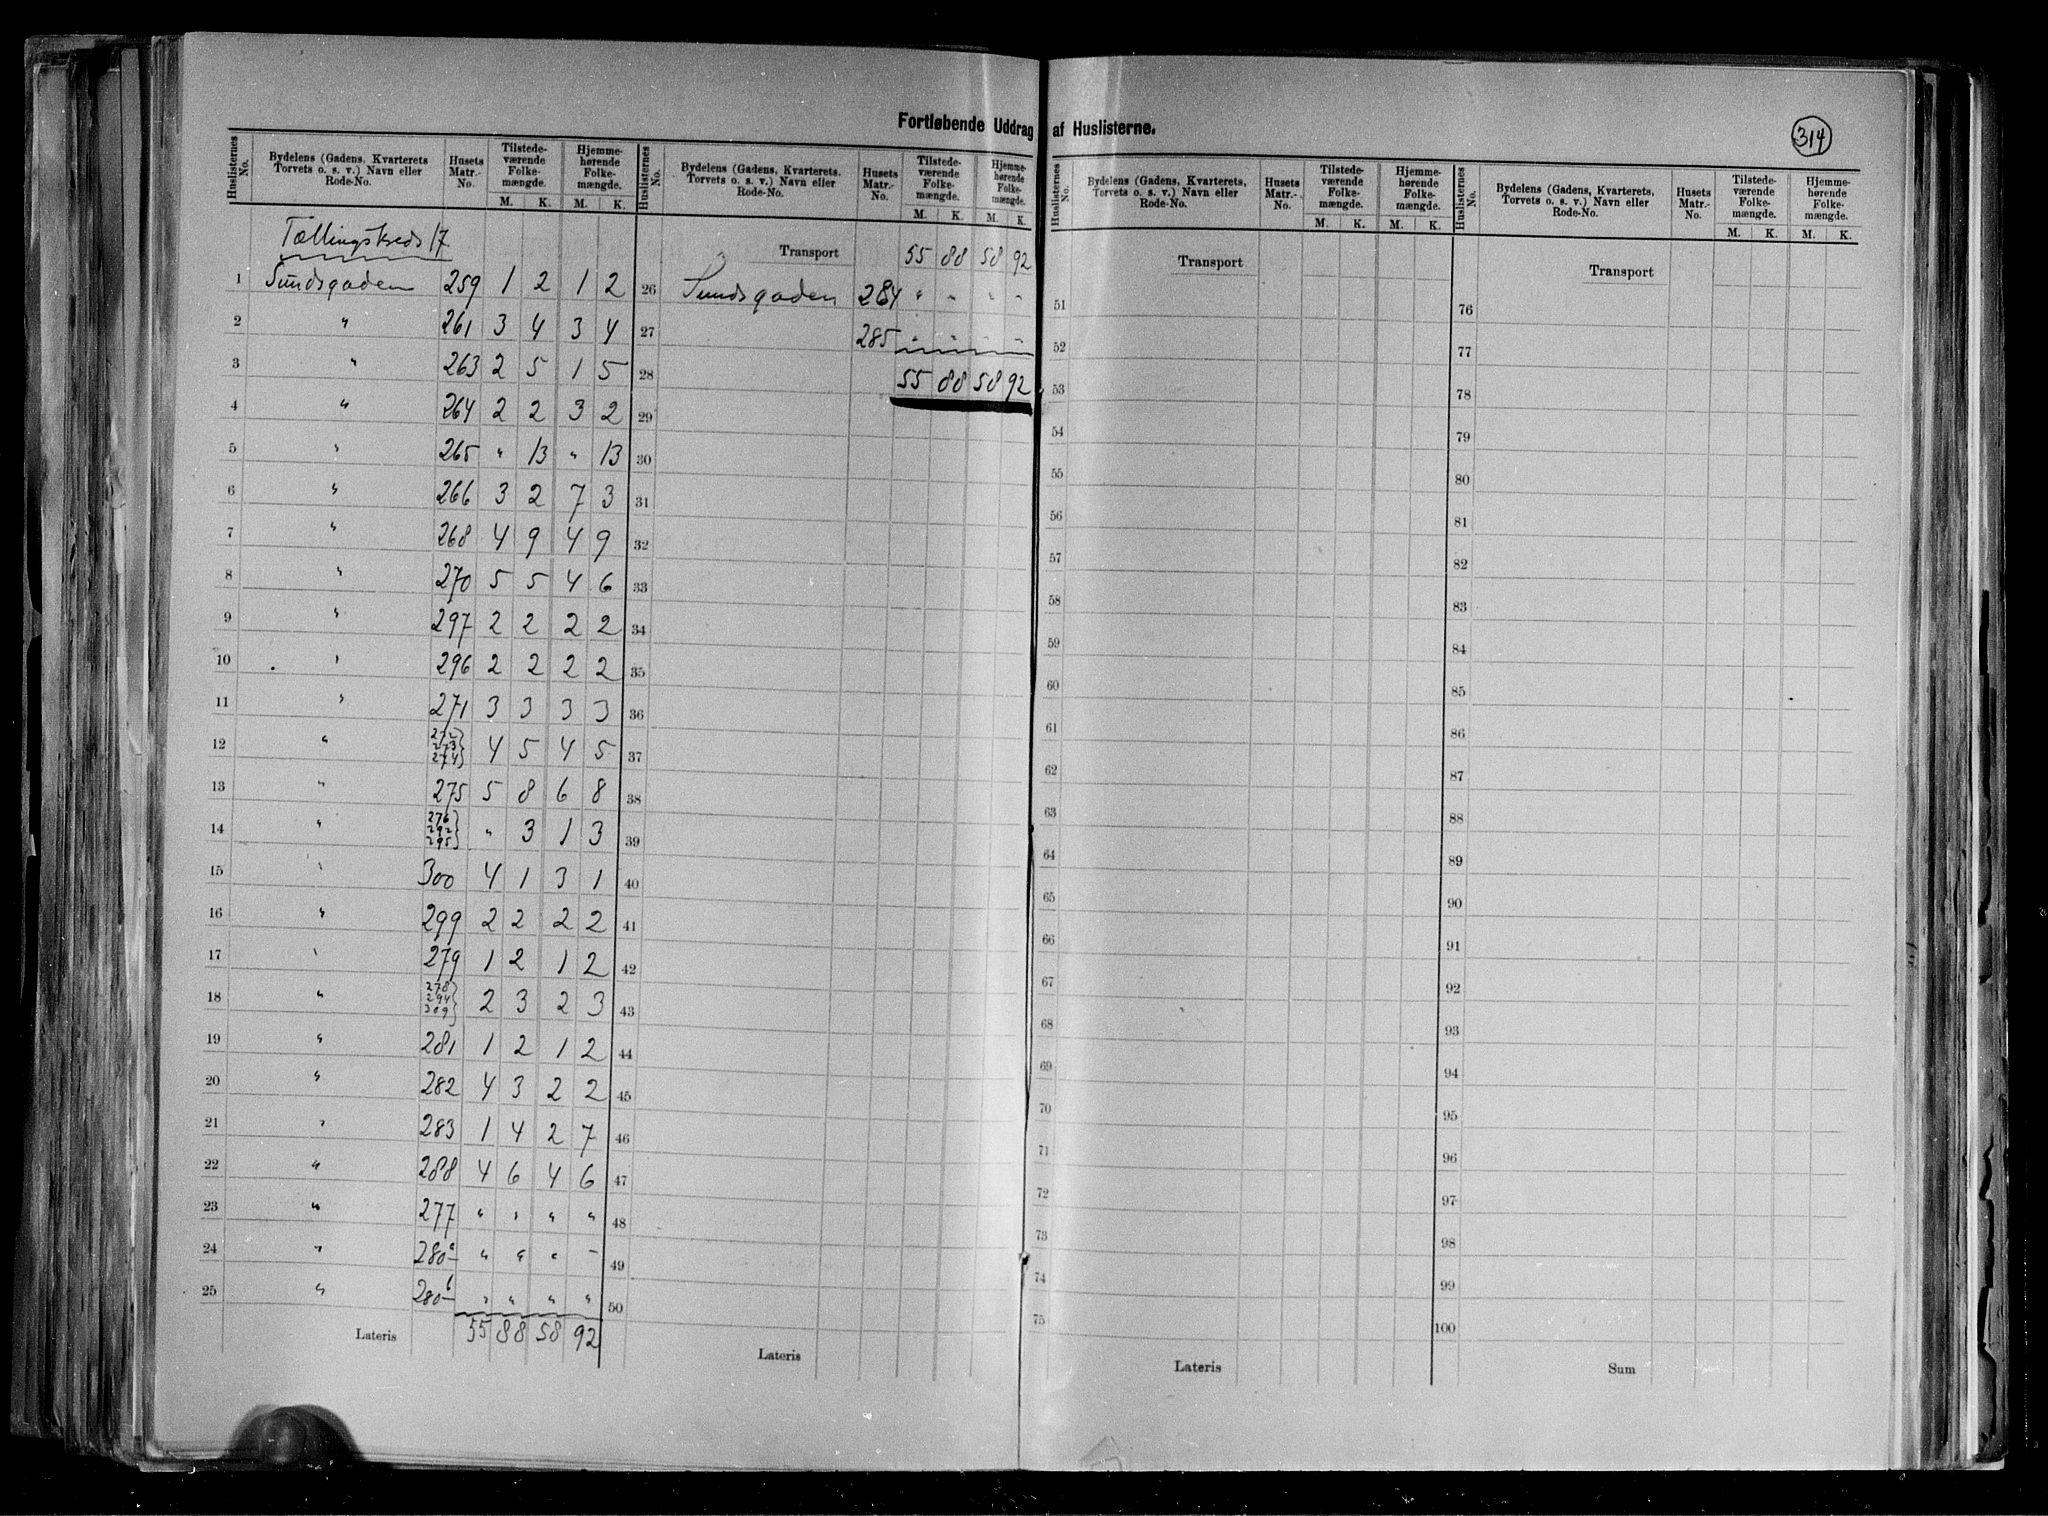 Fortløbende Uddrag af Huslisterne.
314
Huslisternes No. Bydelens (Gadens, Kvarterets Torvets o. s. v.) Navn eller Rode-No. Husets Matr.-No. Tilstedeværende Folkemængde. M. K. Hjemmehørende Folkemængde. M. K.
Tællingskreds 17
1 Sundsgaden 259 1 2 1 2
2 " 261 3 4 3 4
3 " 263 2 5 1 5
4 " 264 2 2 3 2
5 " 265 " 13 " 13
6 " 266 3 2 7 3
7 " 268 4 9 4 9
8 " 270 5 5 4 6
9 " 297 2 2 2 2
10 " 296 2 2 2 2
11 " 271 3 3 3 3
12 " 272 273 274 } 4 5 4 5
13 " 275 5 8 6 8
14 " 276 292 295 } " 3 1 3
15 " 300 4 1 3 1
16 " 299 2 2 2 2
17 " 279 1 2 1 2
18 " 278 294 309 } 2 3 2 3
19 " 281 1 2 1 2
20 " 282 4 3 2 2
21 " 283 1 4 2 7
22 " 288 4 6 4 6
23 " 277 " " " "
24 " 280a " " " -
25 " 280b " " " "
Lateris 55 88 58 92
Huslisternes No. Bydelens (Gadens, Kvarterets, Torvets o. s. v.) Navn eller Rode-No. Husets Matr.-No. Tilstedeværende Folkemængde. M. K. Hjemmehørende Folkemængde. M. K.
Transport 55 88 58 92
26 Sundsgaden 284 " " " "
27 285 " " " "
28 55 88 58 92
29
30
31
32
33
34
35
36
37
38
39
40
41
42
43
44
45
46
47
48
49
50
Lateris
Huslisternes No. Bydelens (Gadens, Kvarterets, Torvets o. s. v.) Navn eller Rode-No. Husets Matr.-No. Tilstedeværende Folkemængde. M. K. Hjemmehørende Folkemængde. M. K.
Transport
51
52
53
54
55
56
57
58
59
60
61
62
63
64
65
66
67
68
69
70
71
72
73
74
75
Lateris
Huslisternes No. Bydelens (Gadens, Kvarterets, Torvets o. s. v.) Navn eller Rode-No. Husets Matr.-No. Tilstedeværende Folkemængde. M. K. Hjemmehørende Folkemængde. M. K.
Transport
76
77
78
79
80
81
82
83
84
85
86
87
88
89
90
91
92
93
94
95
96
97
98
99
100
Sum